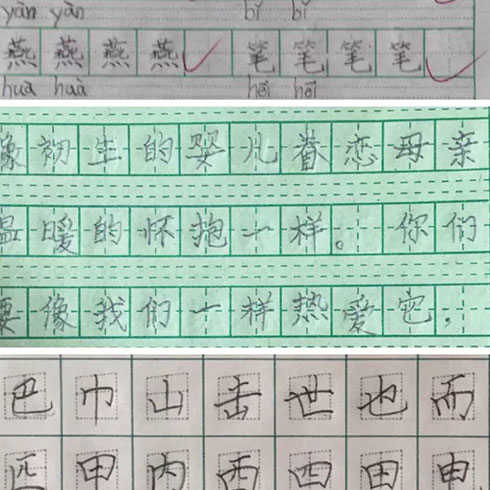 yàn yàn bǐ bǐ
燕 燕 燕 燕 笔 笔 笔 笔
huà huà hēi hēi
像初生的婴儿眷恋母亲
温暖的怀抱一样。你们
要像我们一样热爱它，
巴 巾 山 击 世 也 而
匹 甲 内 西 四 田 申